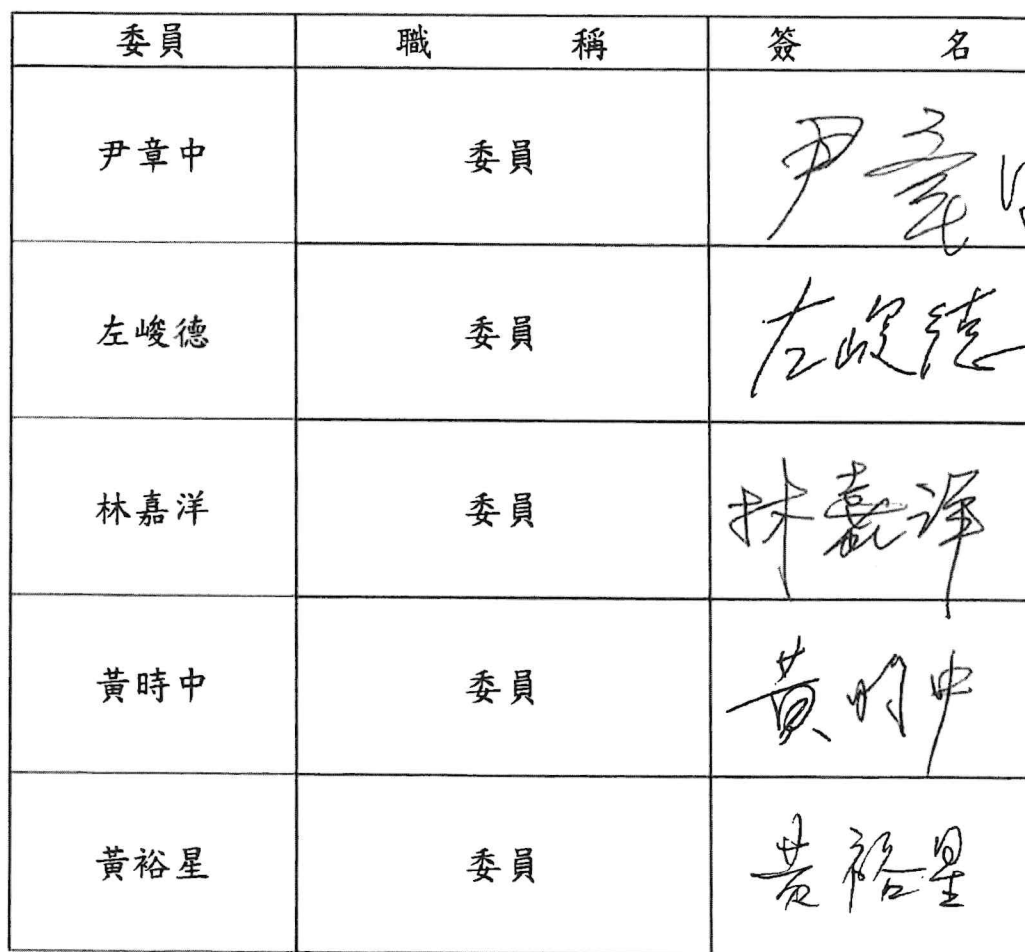 委員 職稱 簽名
尹章中 委員 尹章
左峻德 委員 左峻德
林嘉洋 委員 林嘉洋
黃時中 委員 黃時中
黃裕星 委員 黃裕星